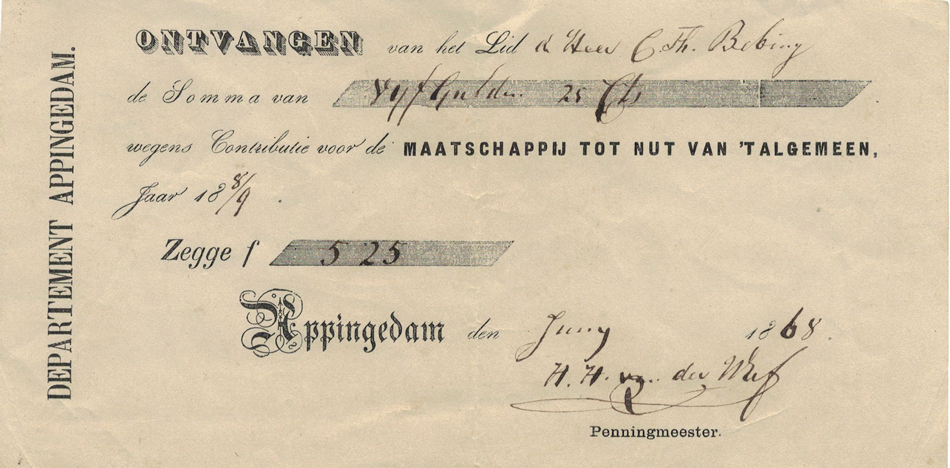 DEPARTEMENT APPINGEDAM.
ONTVANGEN van het Lid d Heer C. Th. Bebing
de Somma van Vyf Gulden 25 Cts
wegens Contributie voor de MAATSCHAPPIJ TOT NUT VAN 'TALGEMEEN,
Jaar 18 8/9 .
Zegge f 5 25
Appingedam den Juny 1868.
H. H. van der Werf
Penningmeester.